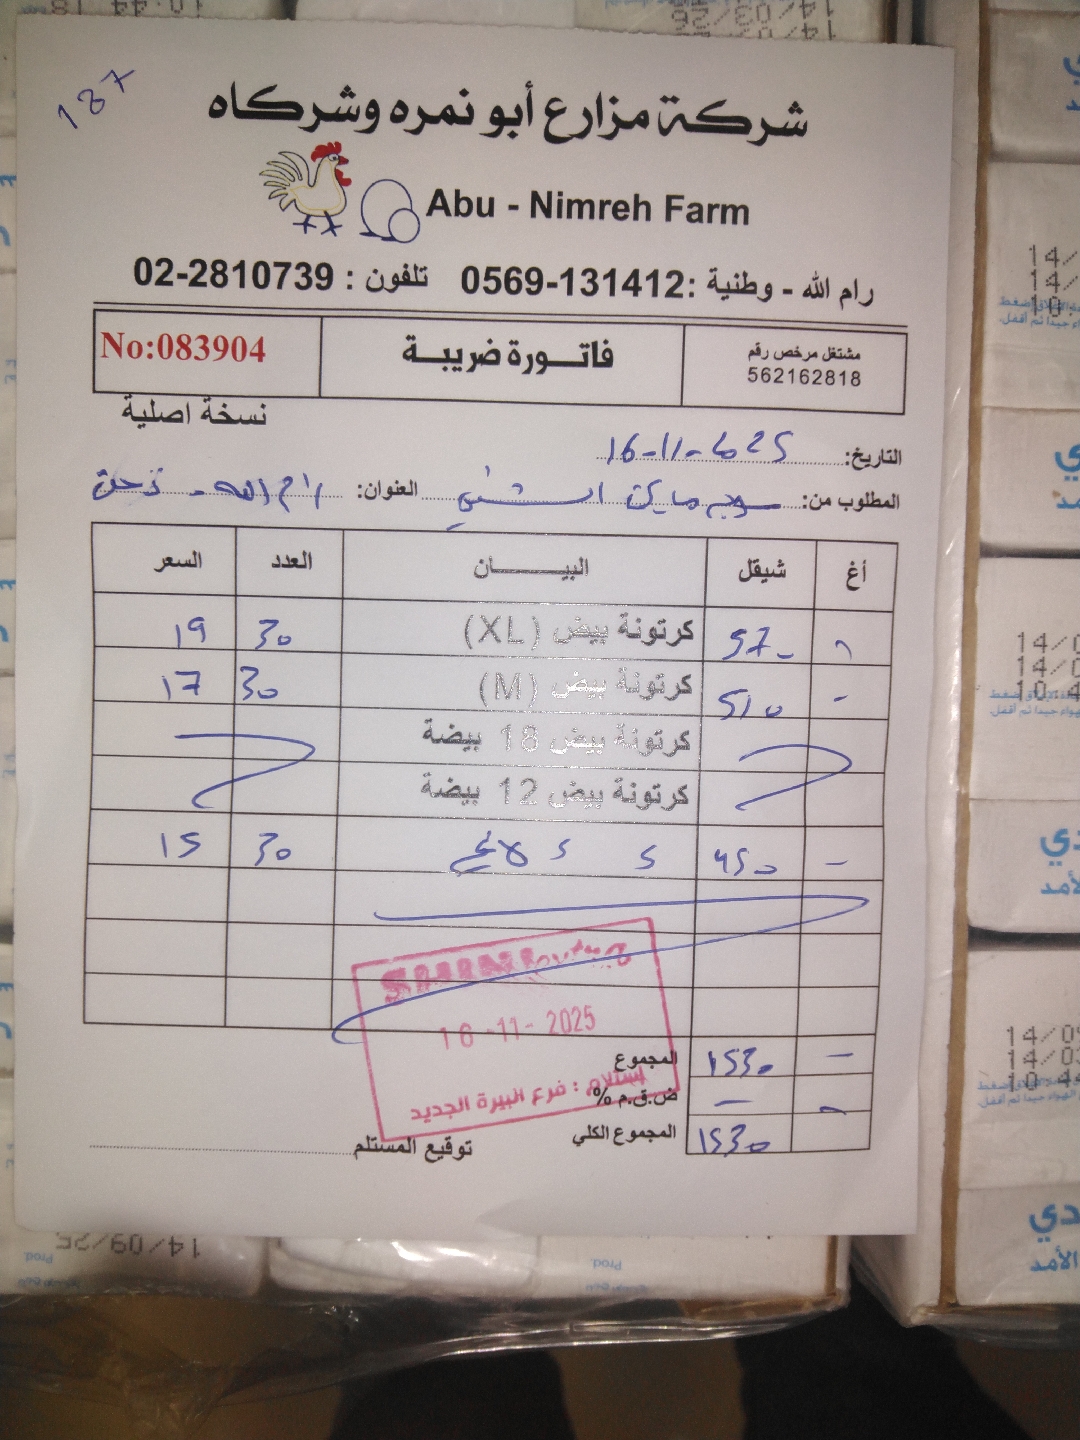 187
شركة مزارع أبو نمره وشركاه
Abu - Nimreh Farm
رام الله - وطنية :0569-131412 تلفون : 02-2810739
مشتغل مرخص رقم
562162818
فاتورة ضريبة
No:083904
نسخة اصلية
التاريخ: 16-11-2025
المطلوب من: سوبر ماركت الشني العنوان: رام الله -
أغ شيقل البيان العدد السعر
- 570 كرتونة بيض (XL) 30 19
- 510 كرتونة بيض (M) 30 17
كرتونة بيض 18 بيضة
كرتونة بيض 12 بيضة
- 450 30 15
16 -11- 2025
استلام : فرع البيرة الجديد
المجموع 1530 -
ض.ق.م % -
المجموع الكلي 1530
توقيع المستلم
14/09/25
Prod.
Prod.